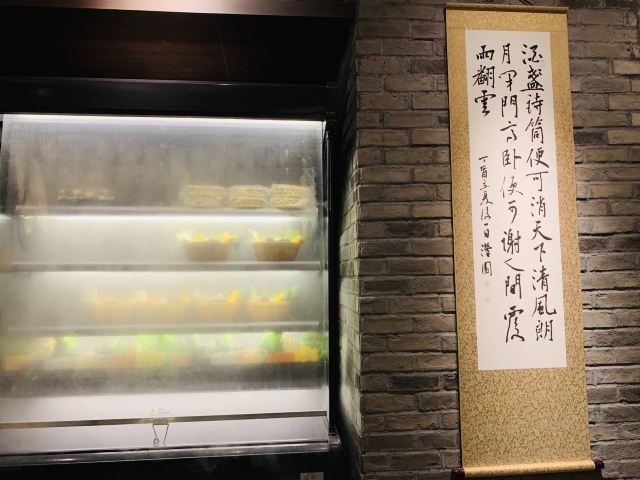 酒盏诗筒便可消天下清風朗
月閉門高卧便可謝人間覆
雨翻雲
丁酉立夏後一日潛園